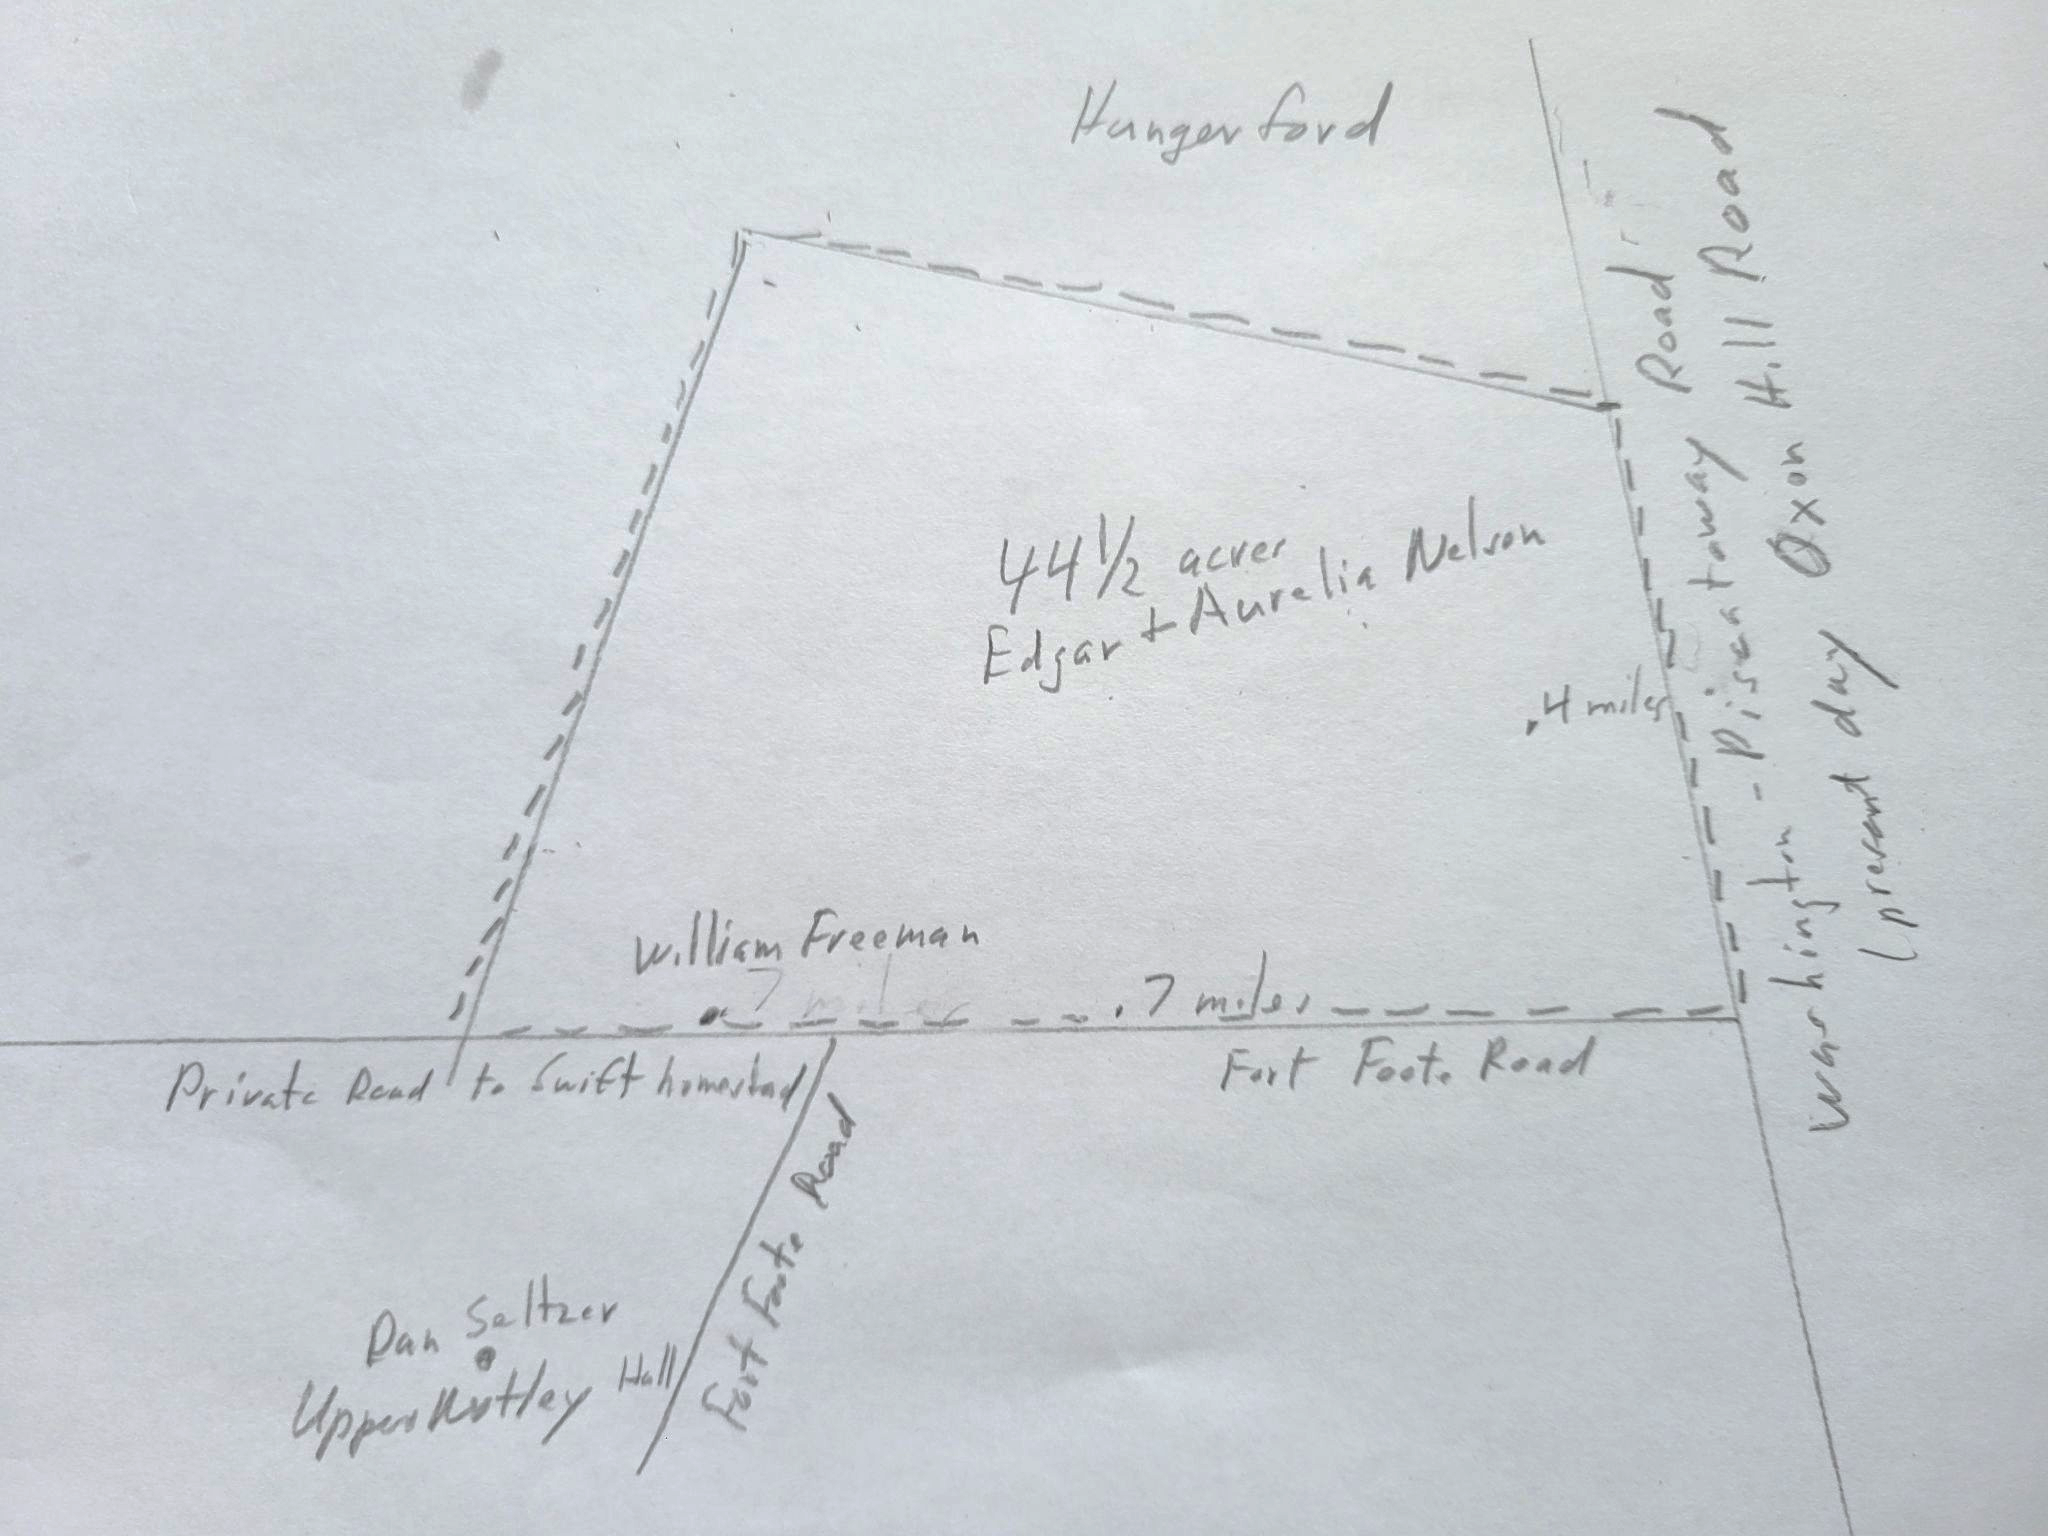 Hungerford
44 1/2 acres
Edgar + Aurelia Nelson
.4 miles
Washington - Piscataway Road
(present day Oxon Hill Road
William Freeman
7 miles
.7 miles
Private Road to Swift homestead
Fort Foote Road
Fort Foote Road
Dan Seltzer
Hall